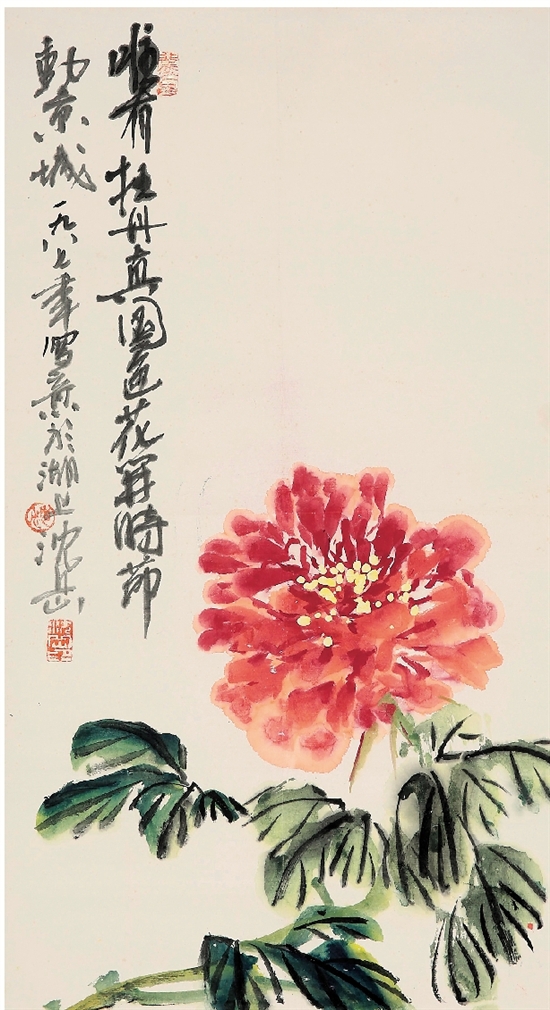 唯有牡丹真国色花开时节
動京城一九八七年写意於湖上沈岳